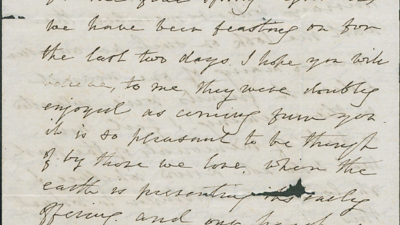 we have been feasting on for
the last two days I hope you will
believe, to me they were doubly
enjoyed as coming from you.
it is so pleasant to be though
of by those we love, when the
earth is presenting its daily
offering and one